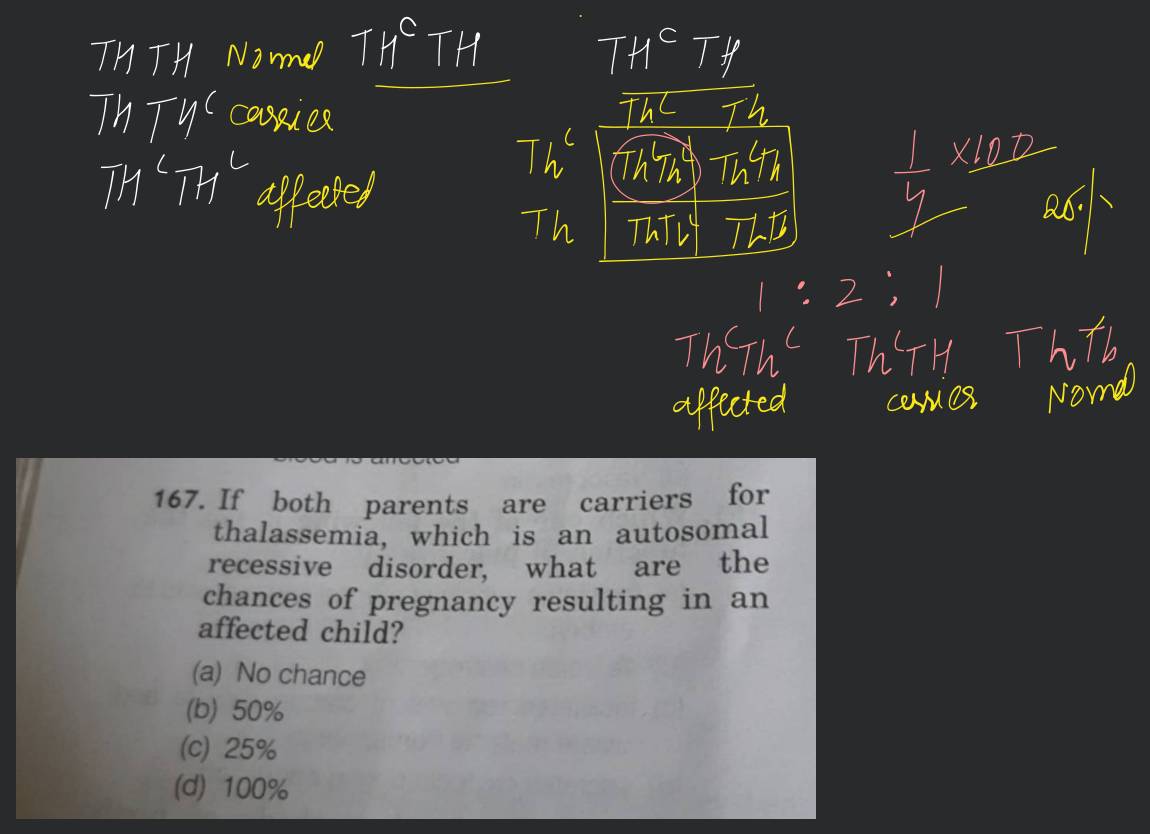 TH TH Normal TH^C TH TH^C TH
TH TH^C carrier
TH^C TH^C affected
Th^C Th
Th^C Th^C Th^C Th^C Th
Th Th Th^C Th Th
1/4 × 100 25%
1 : 2 : 1
Th^C Th^C Th^C TH Th Th
affected carrier Normal
blood is affected
167. If both parents are carriers for
thalassemia, which is an autosomal
recessive disorder, what are the
chances of pregnancy resulting in an
affected child?
(a) No chance
(b) 50%
(c) 25%
(d) 100%